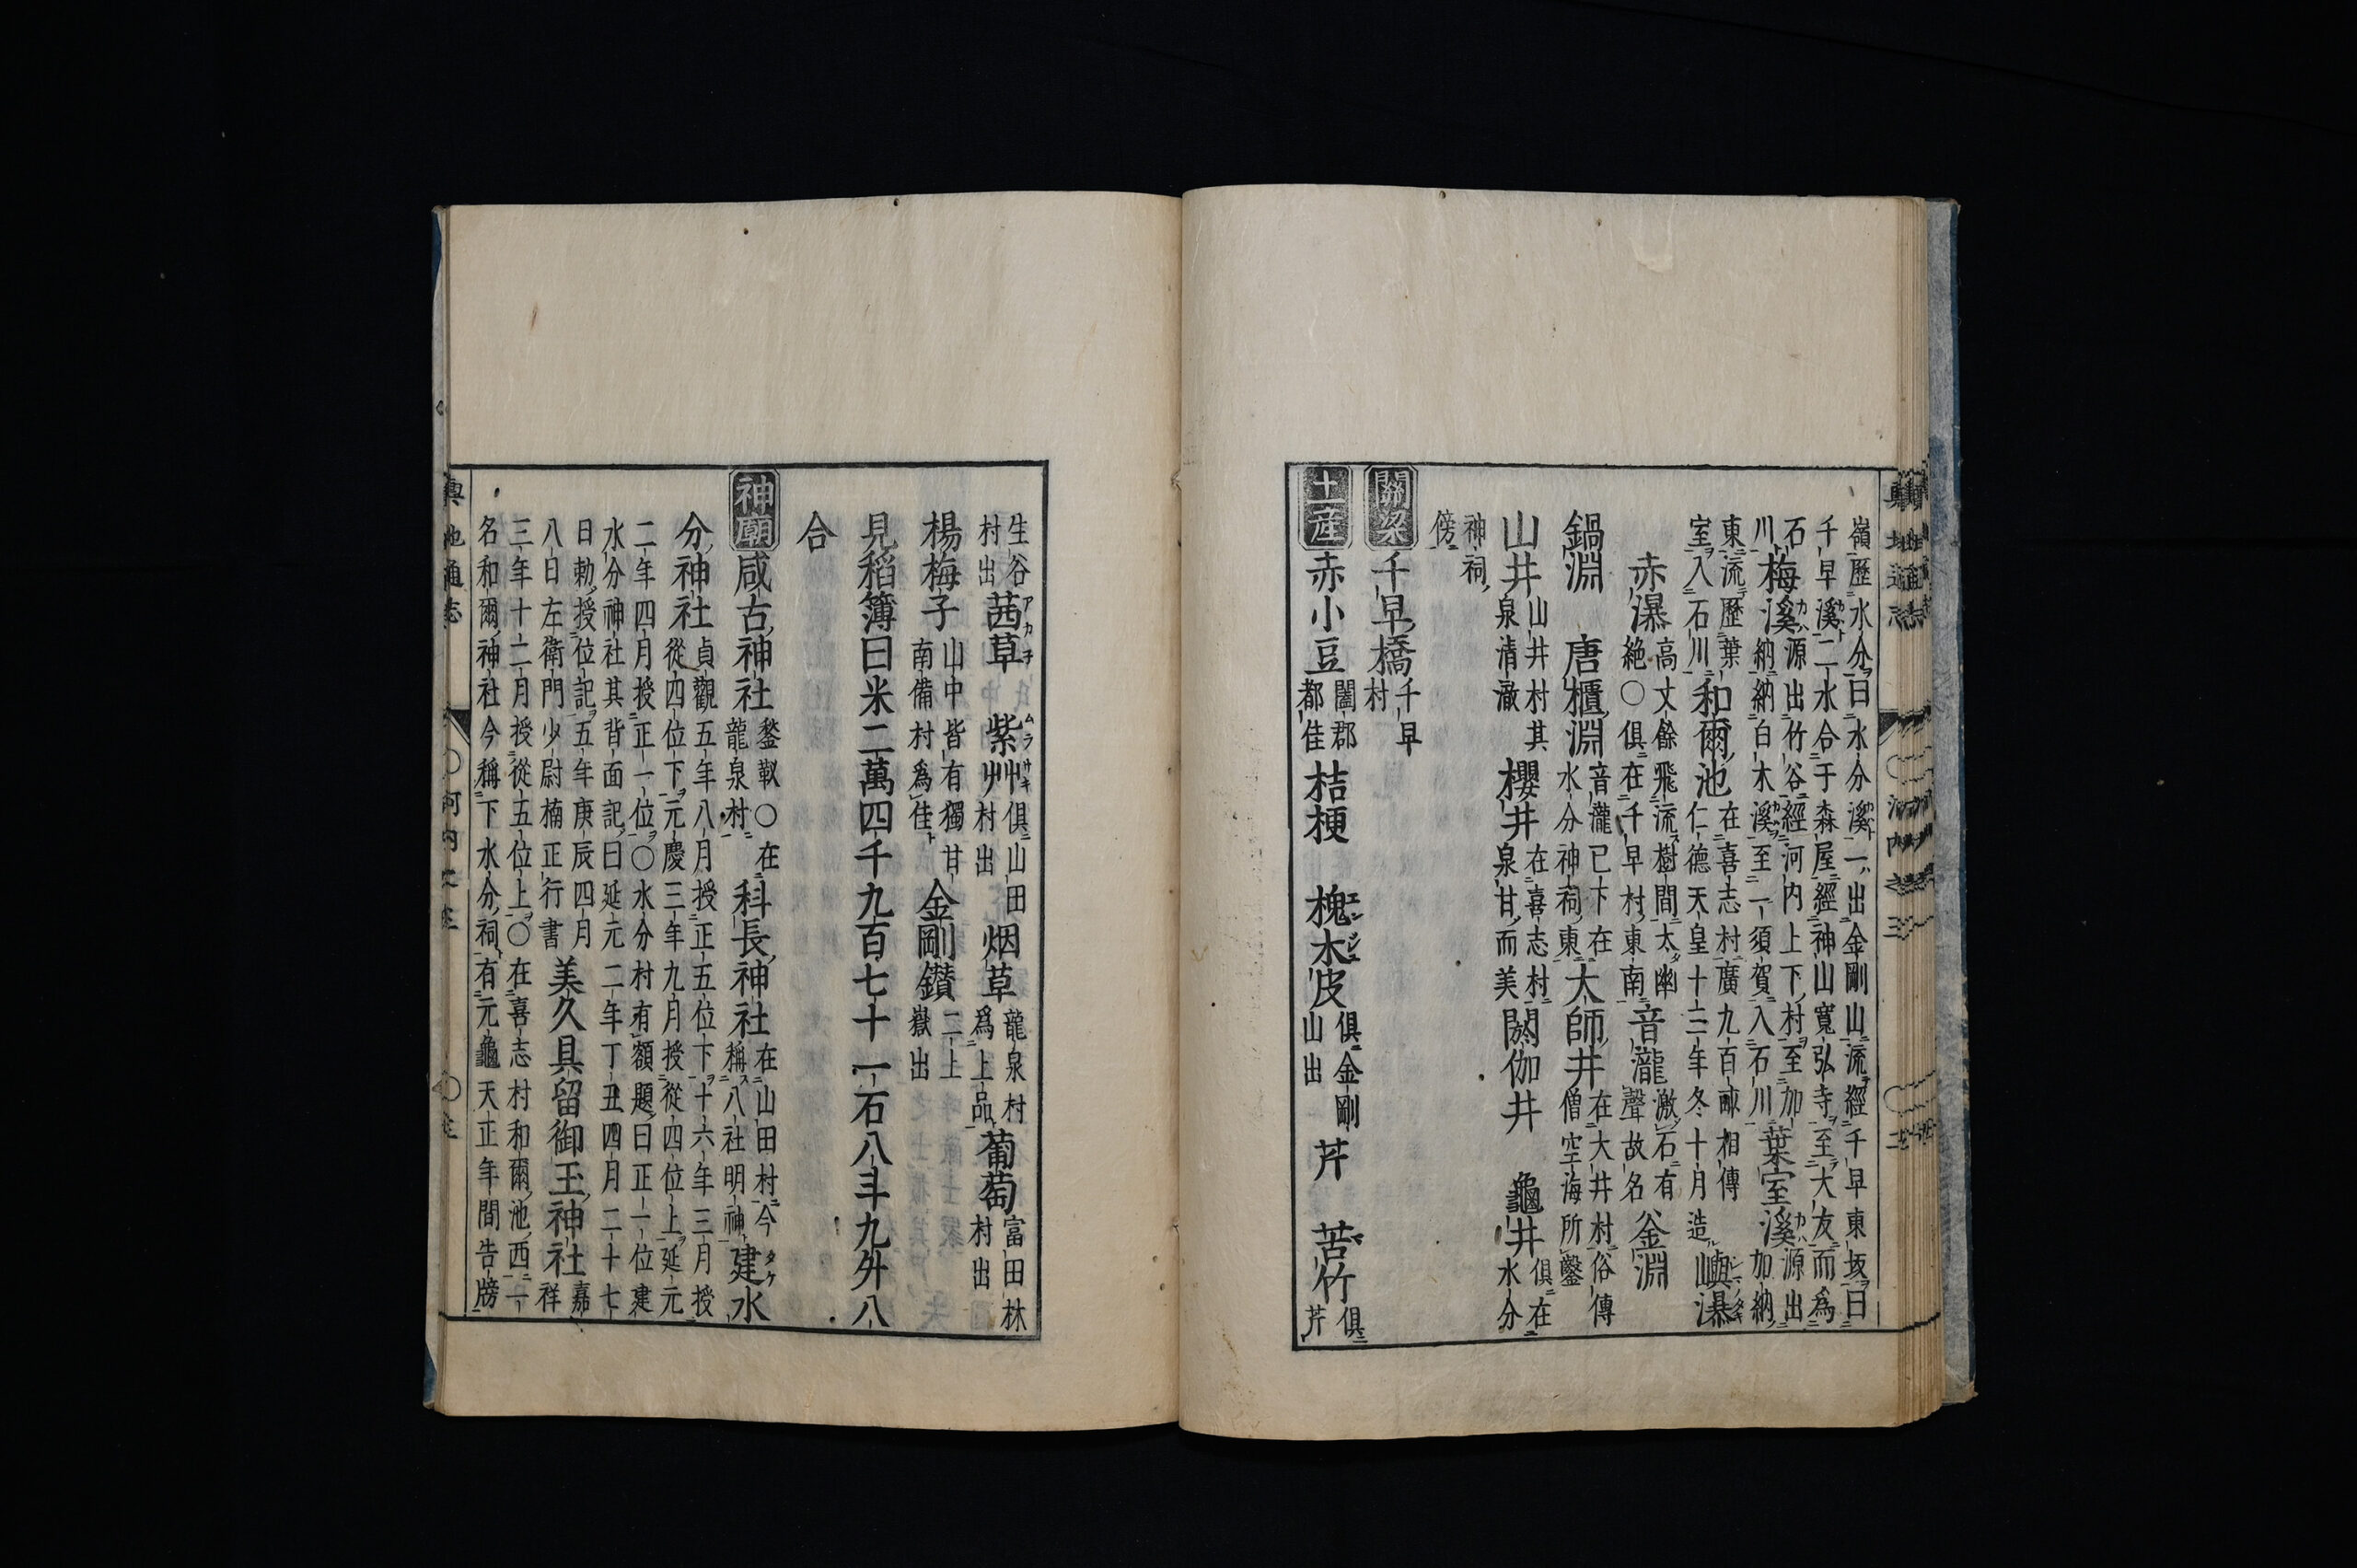 嶺歷水分曰水分溪一出金剛山流經千早東坂曰
千早溪二水合于森屋經神山寬弘寺至大友而爲
石川梅溪源出竹谷經河内上下村至加納納白木溪至一須賀入石川葉室溪源出加納
東流歷葉室入石川和爾池在喜志村廣九百畝相傳仁德天皇十二年冬十月造嶼瀑
赤瀑高丈餘飛流樹間太幽絶〇俱在千早村東南音瀧激石有聲故名釜淵
鍋淵 唐櫃淵音瀧已下在水分神祠東大師井在大井村俗傳僧空海所鑿
山井山井村其泉清澈櫻井在喜志村泉甘而美閼伽井 龜井俱在水分
神祠傍
關梁千早橋千早村
土產赤小豆闔郡都佳桔梗 槐木皮俱金剛山出芹 苦竹俱芹
生谷村出茜草アカネ 紫艸ムラサキ俱山田村出烟草龍泉村爲上品葡萄富田林村出
楊梅子山中皆有獨甘南備村爲佳金剛鑚二上嶽出
見稻簿曰米二萬四千九百七十一石八斗九舛八
合
神廟咸古神社鍫靫〇在龍泉村科長神社在山田村今稱八社明神建水タケ
分神社貞觀五年八月授正五位下十六年三月授從四位下元慶三年九月授從四位上延元
二年四月授正一位〇水分村有額題曰正一位建
水分神社其背面記曰延元二年丁丑四月二十七
日勅授位記五年庚辰四月八日左衛門少尉楠正行書美久具留御玉神社嘉祥
三年十二月授從五位上〇在喜志村和爾池西一
名和爾神社今稱下水分祠有元龜天正年間告牓